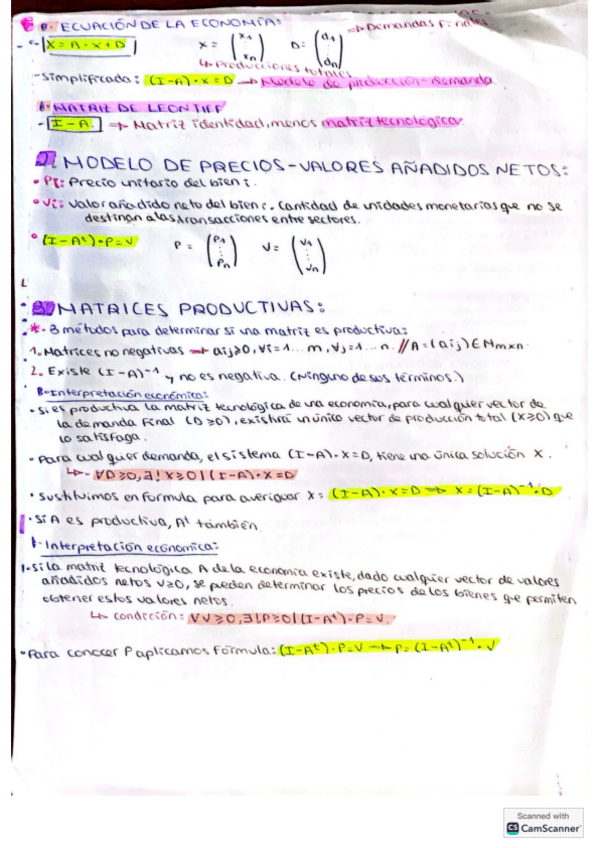 B- ECUACIÓN DE LA ECONOMÍA:
→ Demandas finales
X = A · X + D   X = (x1 ⋮ xn)   D: (d1 ⋮ dn)
↳ Producciones totales
- Simplificada: (I-A)·X = D → Modelo de producción-demanda
B- MATRIZ DE LEONTIEF
- I - A. → Matriz identidad, menos matriz tecnológica.
2. MODELO DE PRECIOS-VALORES AÑADIDOS NETOS:
• Pi: Precio unitario del bien i.
• Vi: Valor añadido neto del bien i. Cantidad de unidades monetarias que no se
destinan a las transacciones entre sectores.
• (I-At)·P=V   P = (P1 ⋮ Pn)   V = (V1 ⋮ Vn)
3. MATRICES PRODUCTIVAS:
*- 3 métodos para determinar si una matriz es productiva:
1. Matrices no negativas → aij≥0, ∀i=1... m, ∀j=1... n. // A=(aij)∈Mmxn.
2. Existe (I-A)-1 y no es negativa. (Ninguno de sus términos.)
B- Interpretación económica:
• Si es productiva la matriz tecnológica de una economía, para cualquier vector de
la demanda final (D≥0), existirá un único vector de producción total (X≥0) que
lo satisfaga.
• Para cualquier demanda, el sistema (I-A)·X=D, tiene una única solución X.
↳ - ∀D≥0, ∃! X≥0 | (I-A)·X=D
• Sustituimos en formula para averiguar X = (I-A)·X=D → X=(I-A)-1·D
• Si A es productiva, At también.
- Interpretación economica:
- Si la matriz tecnológica A de la economía existe, dado cualquier vector de valores
añadidos netos V≥0, se pueden determinar los precios de los bienes que permiten
obtener estos valores netos.
↳ condición: ∀V≥0, ∃! P≥0 | (I-At)·P=V.
• Para conocer P aplicamos fórmula: (I-At)·P=V → P=(I-At)-1·V
Scanned with
CS CamScanner